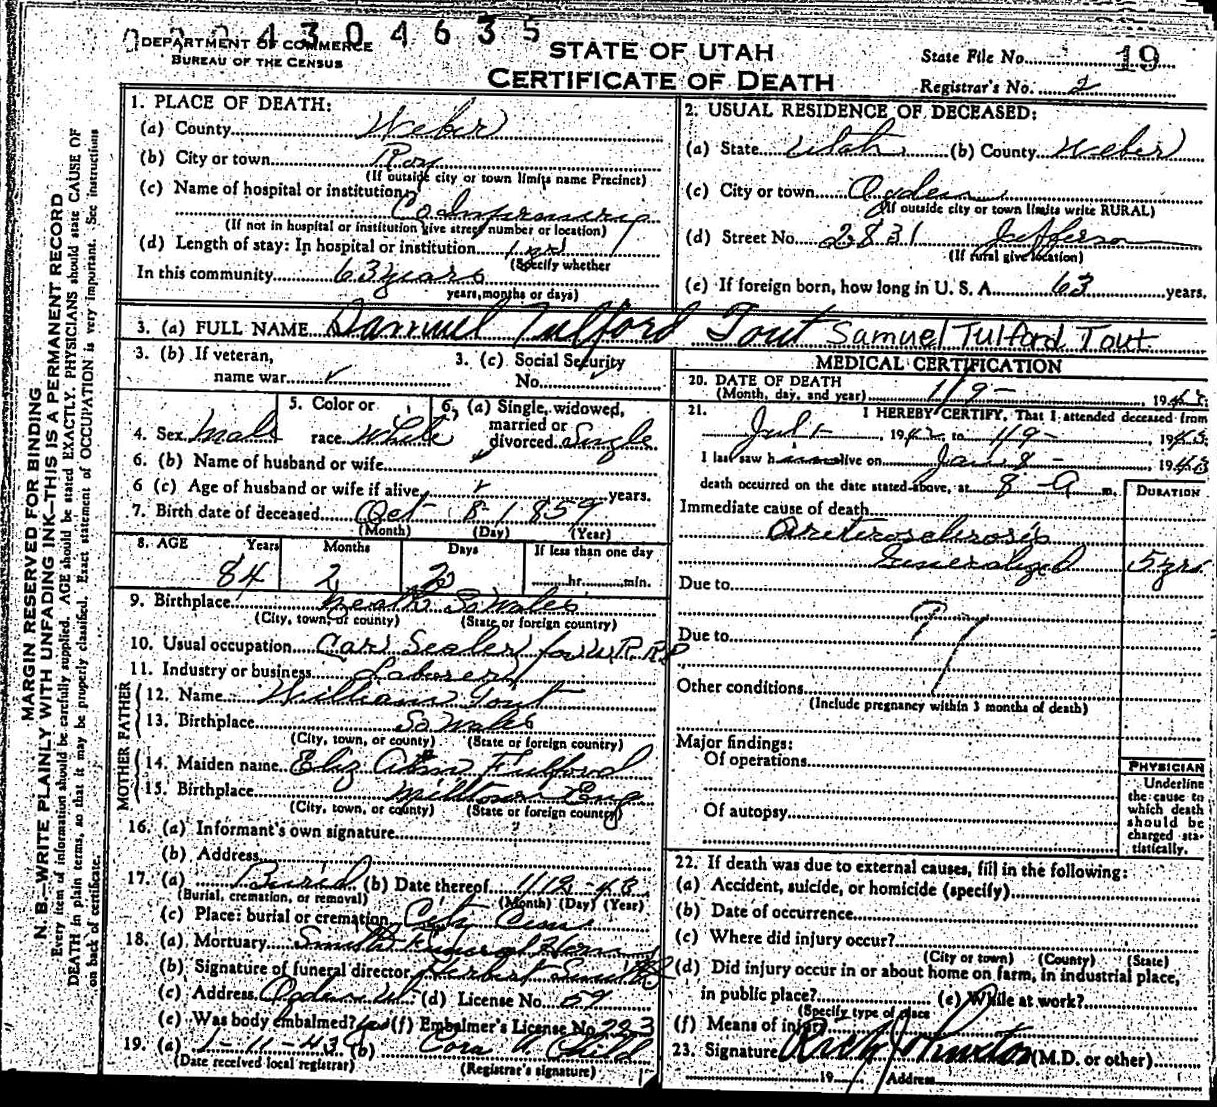 0 0 4 3 0 4 6 3 5
DEPARTMENT OF COMMERCE
BUREAU OF THE CENSUS
STATE OF UTAH
CERTIFICATE OF DEATH
State File No. 19
Registrar's No. 2
MARGIN RESERVED FOR BINDING
N. B.—WRITE PLAINLY WITH UNFADING INK—THIS IS A PERMANENT RECORD
Every item of information should be carefully supplied. AGE should be stated EXACTLY. PHYSICIANS should state CAUSE OF
DEATH in plain terms, so that it may be properly classified. Exact statement of OCCUPATION is very important. See instructions
on back of certificate.
1. PLACE OF DEATH:
(a) County Weber
(b) City or town Roy
(If outside city or town limits name Precinct)
(c) Name of hospital or institution
Co Infirmary
(If not in hospital or institution give street number or location)
(d) Length of stay: In hospital or institution 1 yr
(Specify whether
In this community 63 years
years, months or days)
2. USUAL RESIDENCE OF DECEASED:
(a) State Utah (b) County Weber
(c) City or town Ogden
(If outside city or town limits write RURAL)
(d) Street No. 2831 Jefferson
(If rural give location)
(e) If foreign born, how long in U. S. A. 63 years.
3. (a) FULL NAME Samuel Tulford Tout Samuel Tulford Tout
3. (b) If veteran,
name war
3. (c) Social Security
No.
4. Sex Male
5. Color or
race White
6. (a) Single, widowed,
married or
divorced Single
6. (b) Name of husband or wife
6 (c) Age of husband or wife if alive, years.
7. Birth date of deceased Oct 8 - 1859
(Month) (Day) (Year)
8. AGE Years Months Days If less than one day
84 2 hr. min.
9. Birthplace Neath So Wales
(City, town, or county) (State or foreign country)
10. Usual occupation Car Sealer for U.P.R.R
11. Industry or business Laborer
FATHER
12. Name William Tout
13. Birthplace So Wales
(City, town, or county) (State or foreign country)
MOTHER
14. Maiden name Eliz Ann Fulford
15. Birthplace Milltown Eng
(City, town, or county) (State or foreign country)
16. (a) Informant's own signature
(b) Address
17. (a) Burial (b) Date thereof 1 12 - 43
(Burial, cremation, or removal) (Month) (Day) (Year)
(c) Place: burial or cremation City Cem
18. (a) Mortuary Smith Funeral Home
(b) Signature of funeral director Herbert Smith
(c) Address Ogden Ut. (d) License No. 59
(e) Was body embalmed? yes (f) Embalmer's License No. 223
19. (a) 1-11-43 (b) Cora A. Child
(Date received local registrar) (Registrar's signature)
MEDICAL CERTIFICATION
20. DATE OF DEATH
(Month, day, and year) 1/9 - , 1943
21. I HEREBY CERTIFY, That I attended deceased from
July 1 - , 1942, to 1/9 - , 1943
I last saw him alive on Jan 8 - , 1943
death occurred on the date stated above, at 8 - A m.
DURATION
Immediate cause of death
Arteriosclerosis
Generalized 5 yrs
Due to
97
Due to
Other conditions
(Include pregnancy within 3 months of death)
Major findings:
Of operations
Of autopsy
PHYSICIAN
Underline
the cause to
which death
should be
charged sta-
tistically.
22. If death was due to external causes, fill in the following:
(a) Accident, suicide, or homicide (specify)
(b) Date of occurrence
(c) Where did injury occur?
(City or town) (County) (State)
(d) Did injury occur in or about home on farm, in industrial place,
in public place? (e) While at work?
(Specify type of place
(f) Means of injury
23. Signature Rich Johnston (M.D. or other)
19 Address